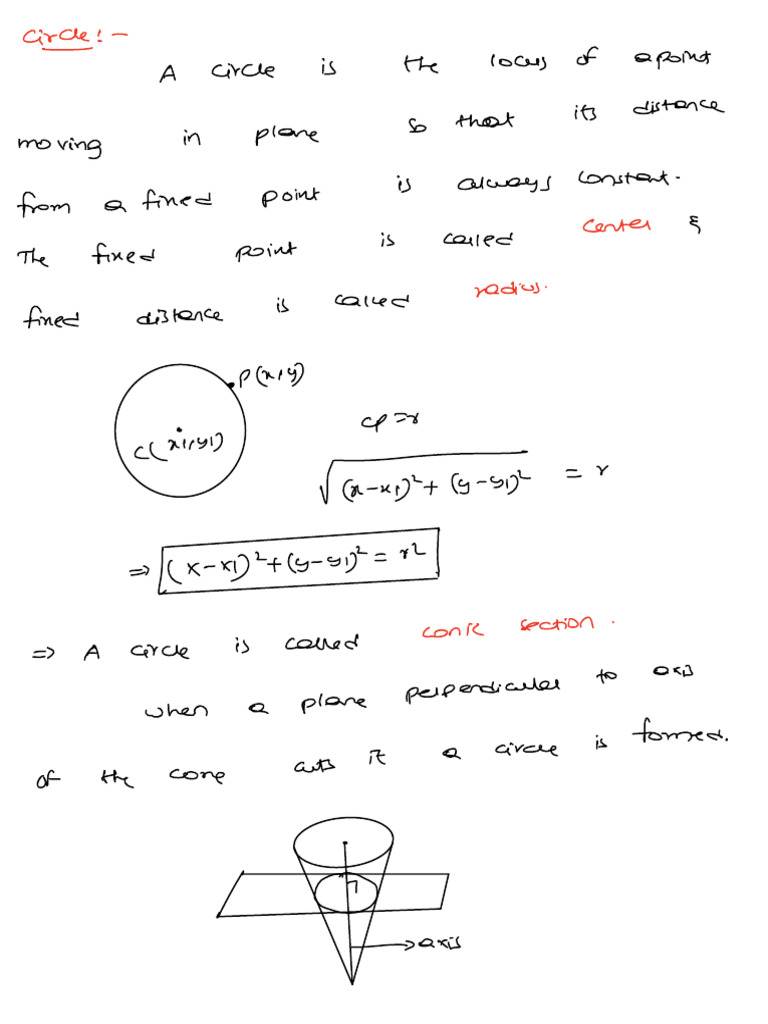 Circle:-
A circle is the locus of a point
moving in plane so that its distance
from a fixed point is always constant.
The fixed point is called center &
fixed distance is called radius.
P(x,y)
C(x1,y1)
CP=r
√(x-x1)²+(y-y1)² = r
⇒ (x-x1)²+(y-y1)²=r²
⇒ A circle is called conic section.
when a plane perpendicular to axis
of the cone cuts it a circle is formed.
→axis